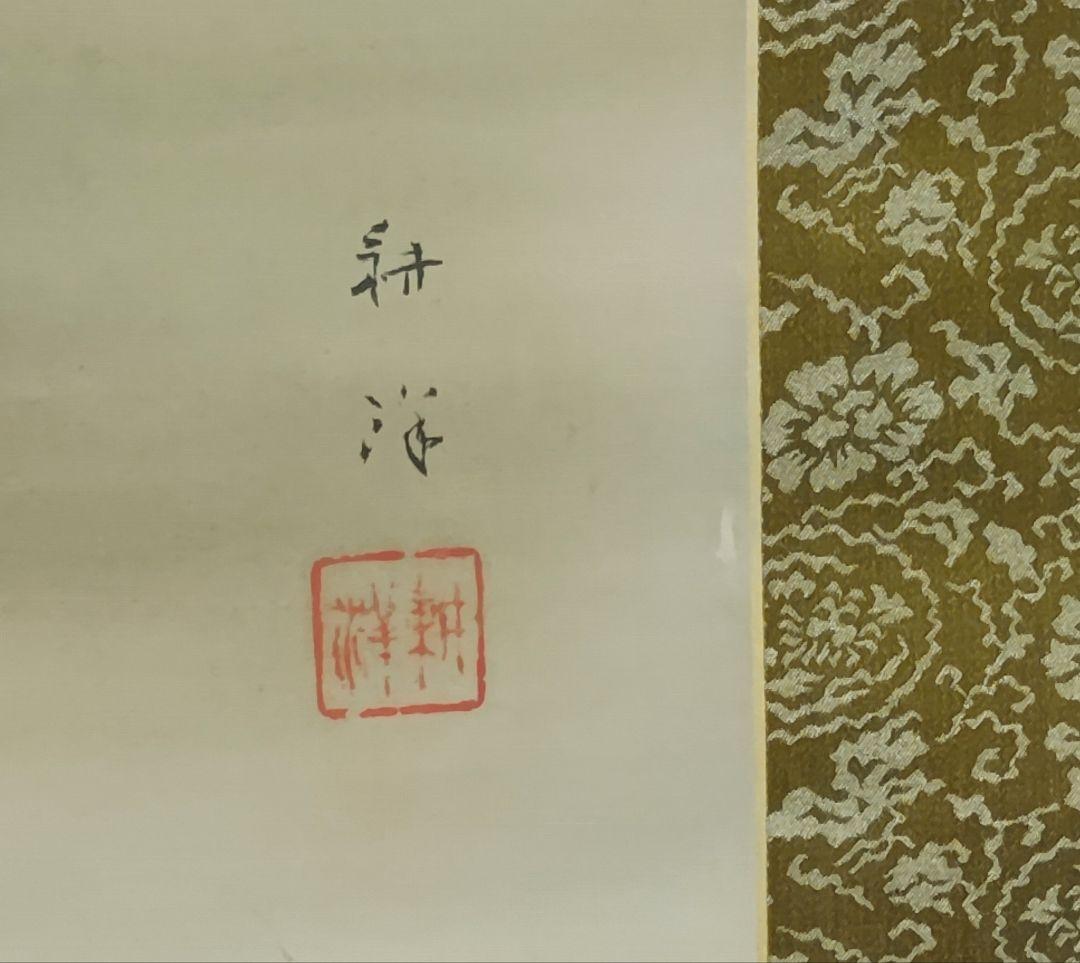 耕
洋
耕洋